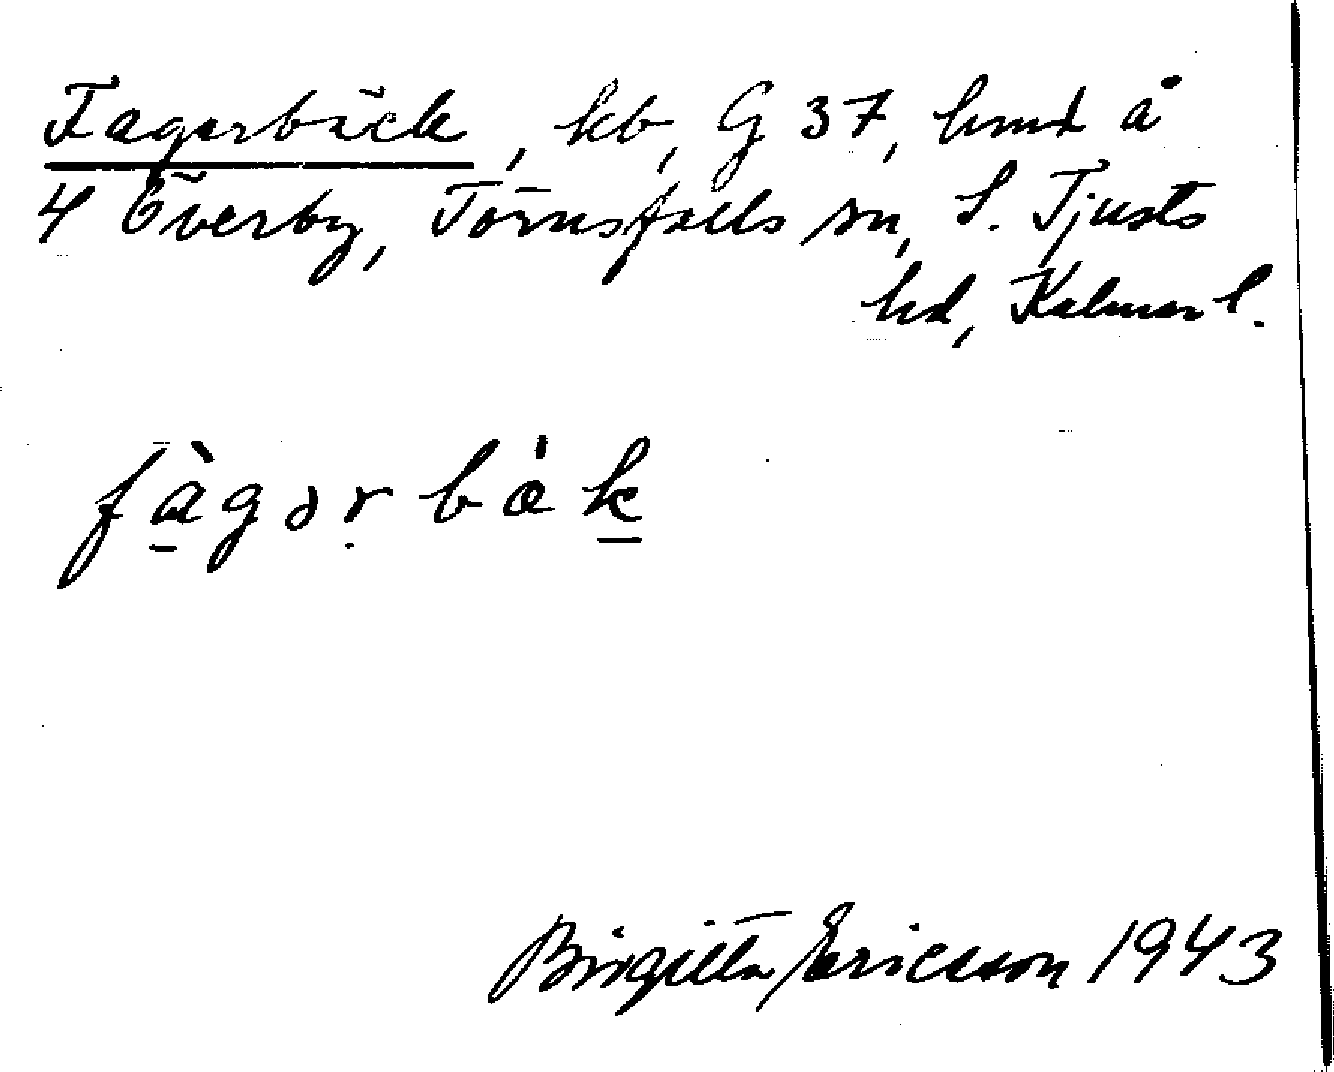 Fagerbäck, kb, G 37, hmd å
4 Överby, Törnsfalls sn, S. Tjusts
hd, Kalmar l.
fàgərbák
Birgitta Ericsson 1943